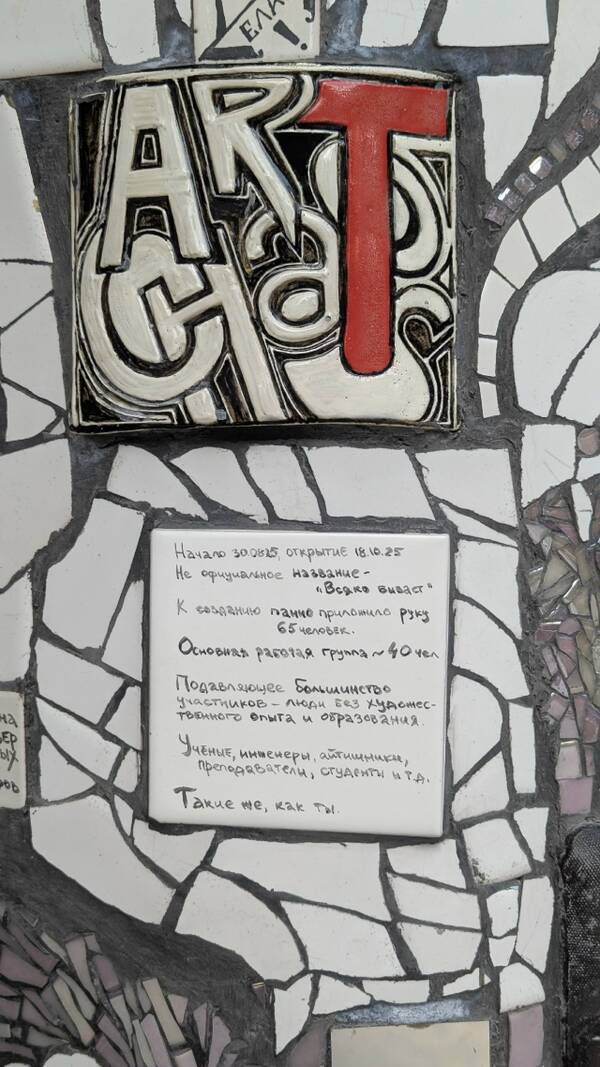 ЕЛА
!
ART
CHaOS
Начало 30.08.25, открытие 18.10.25
Не официальное название -
"Всяко бывает"
К созданию панно приложило руку
65 человек.
Основная рабочая группа ~ 40 чел
Подавляющее большинство
участников - люди без художес-
твенного опыта и образования.
Учёные, инженеры, айтишники,
преподаватели, студенты и т.д.
Такие же, как ты.
на
ЕР
ЫХ
ров